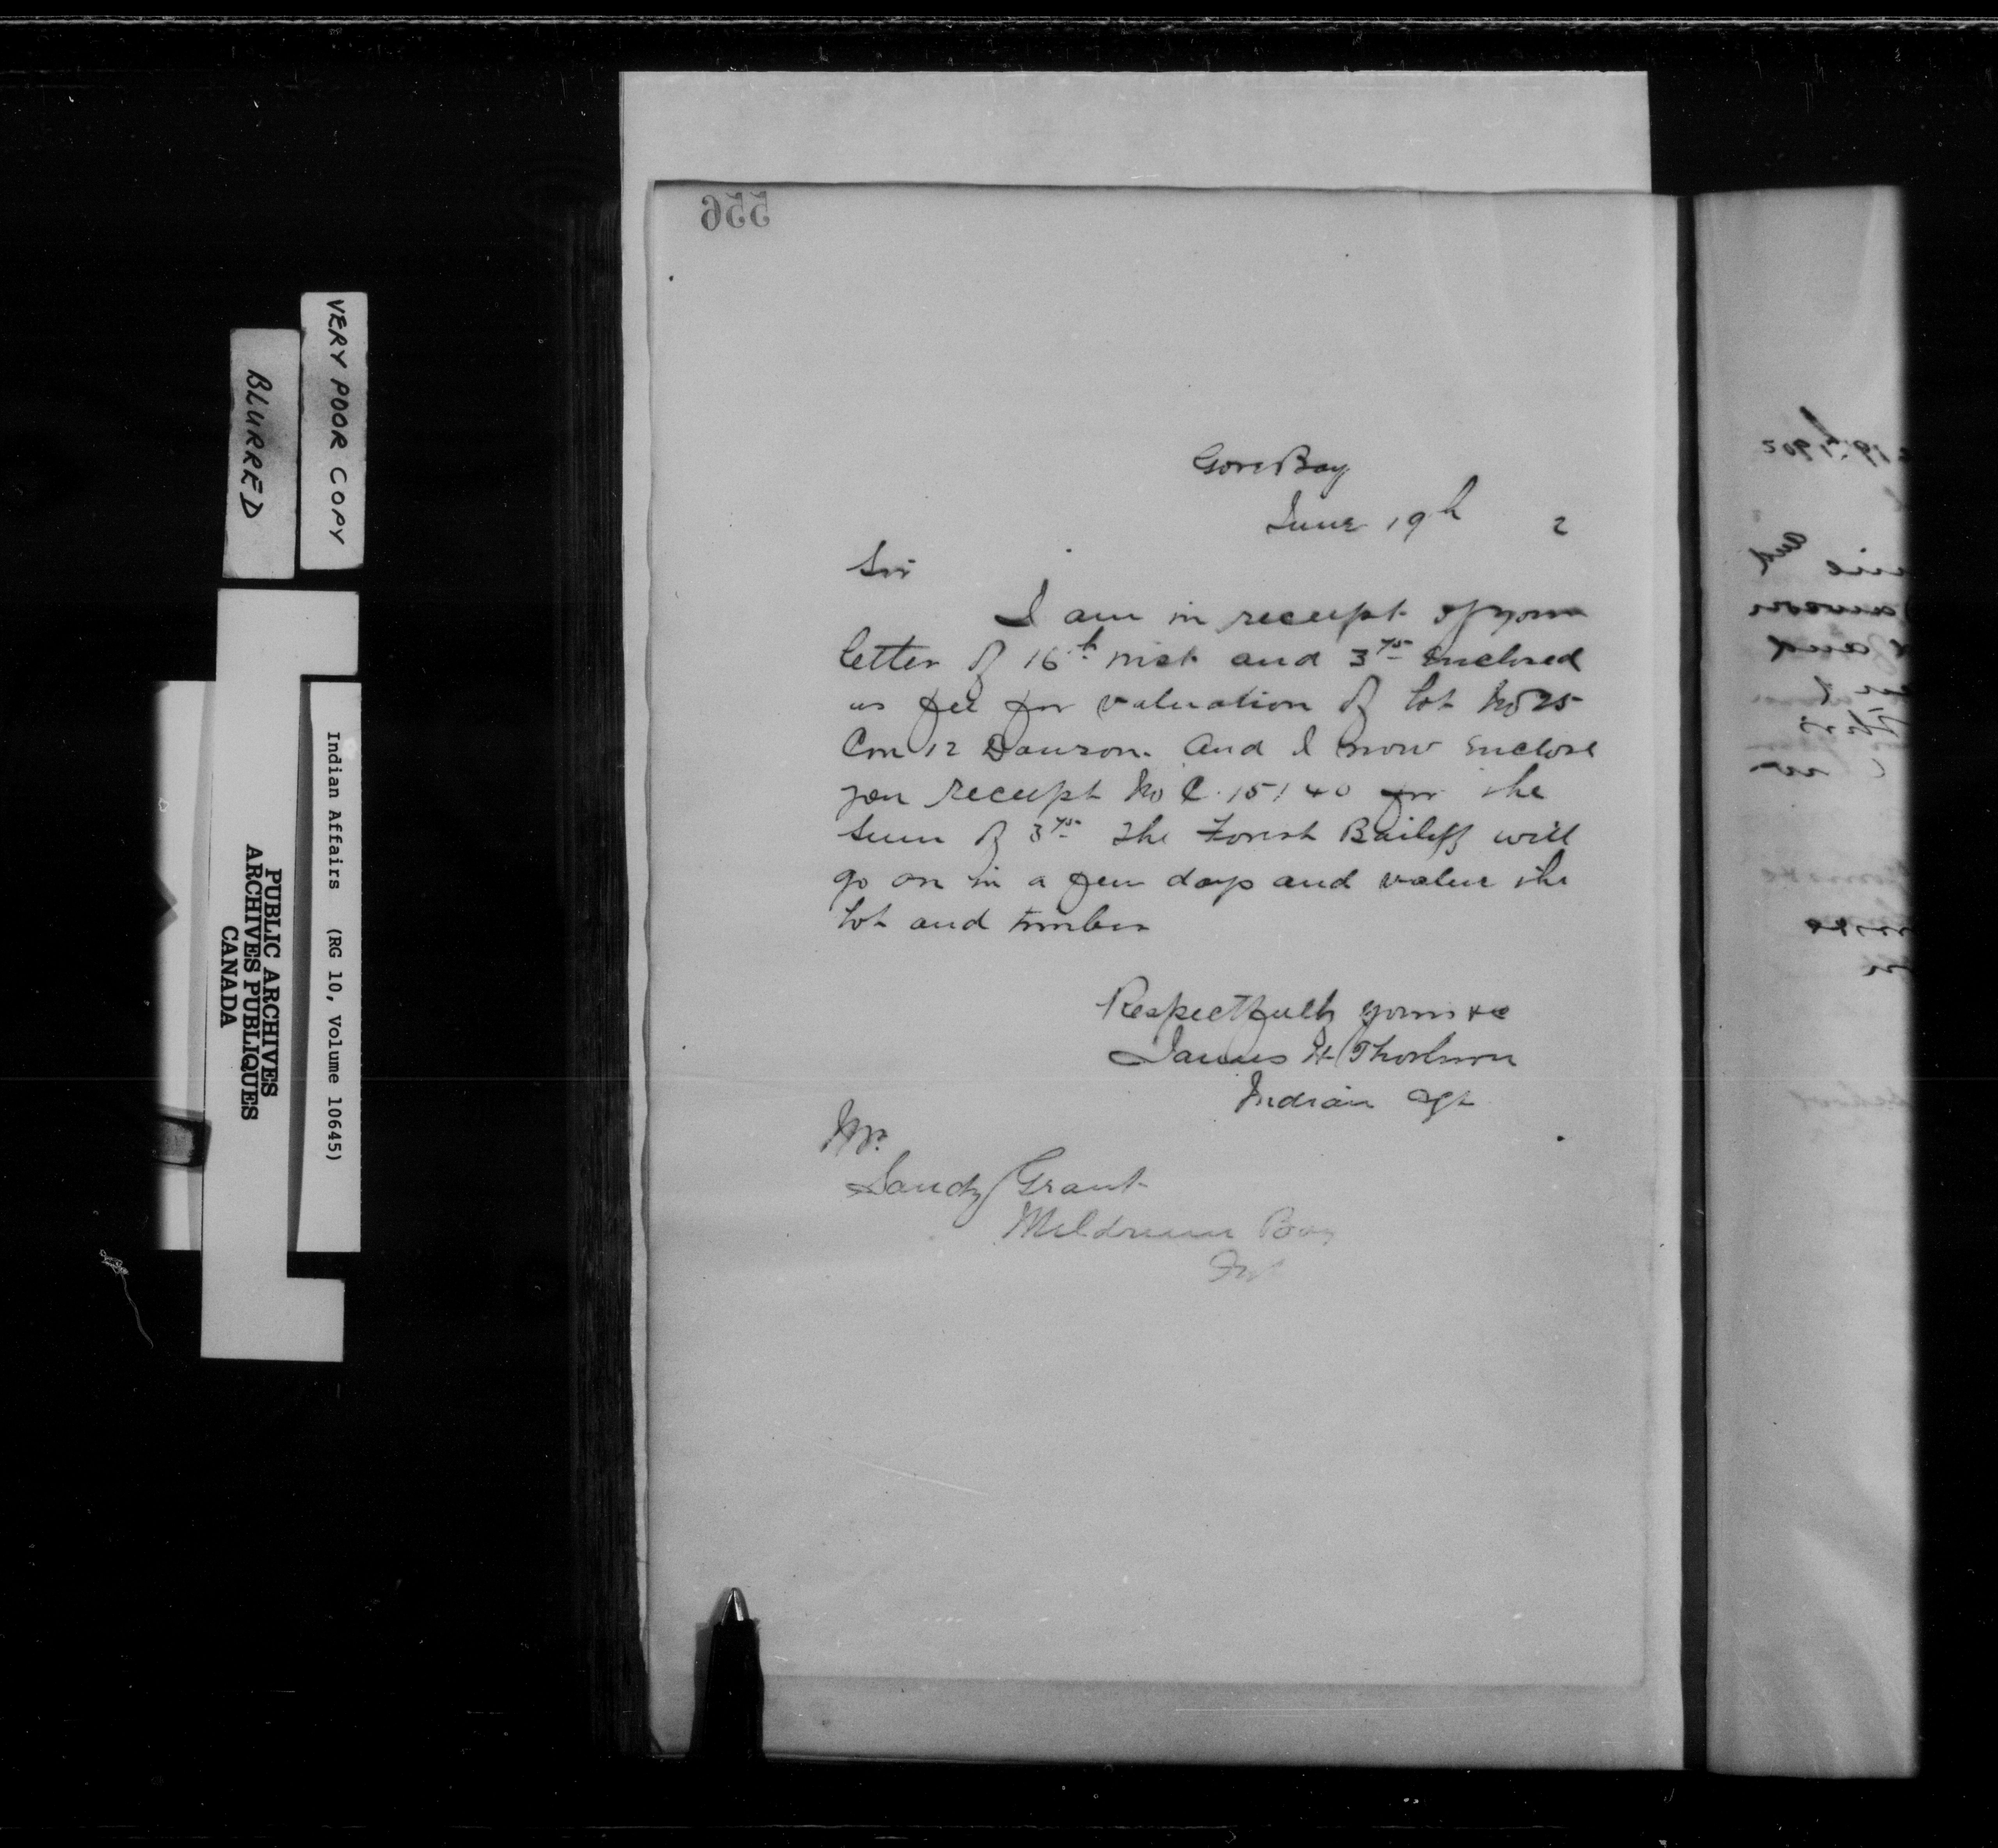 556
Gore Bay
June 19th 2
Sir
I am in receipt of your
letter of 16th inst and 3 75 enclosed
as fee for valuation of Lot No 25
Con 12 Dawson. And I now enclose
you receipt No C. 15140 for the
sum of 3 75 The Forest Bailiff will
go on in a few days and value the
lot and timber
Respectfully yours &c
James H Thorburn
Indian Agt
Mr.
Sandy Grant
Meldrum Bay
VERY POOR COPY
BLURRED
Indian Affairs (RG 10, Volume 10645)
PUBLIC ARCHIVES
ARCHIVES PUBLIQUES
CANADA